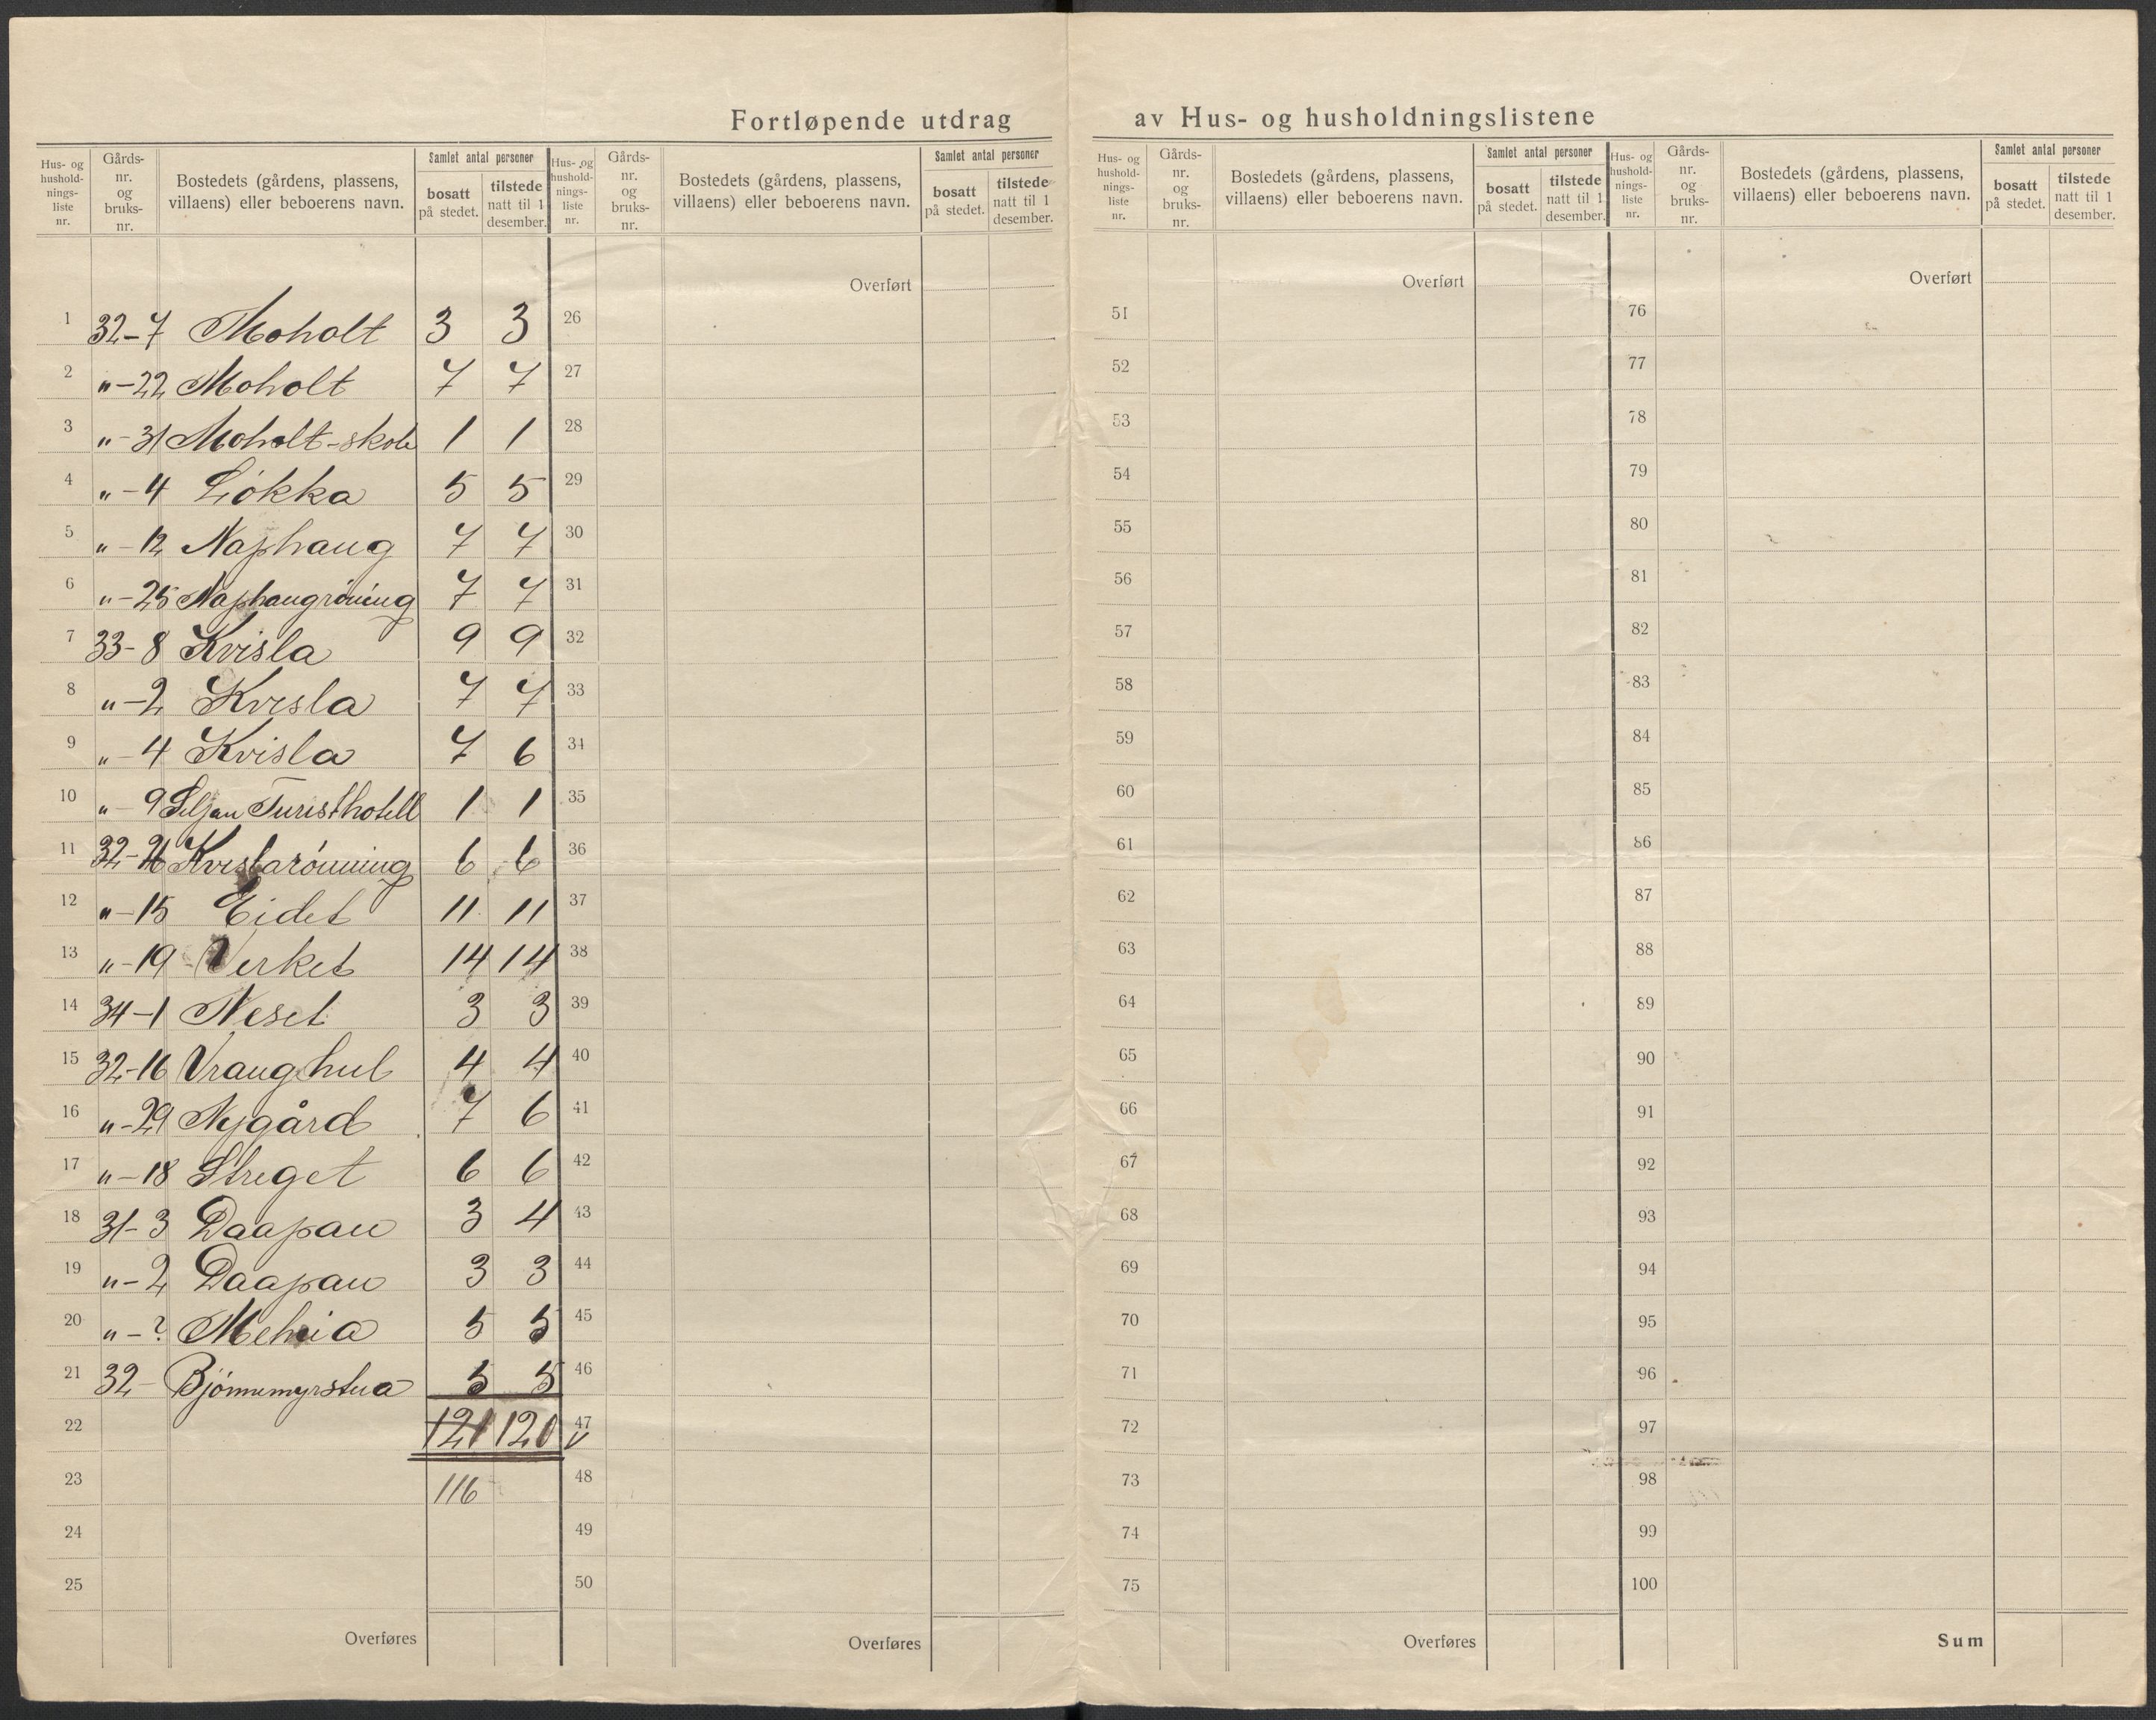 Fortløpende utdrag av Hus- og husholdningslistene
Hus- og hushold-nings-liste nr. Gårds-nr. og bruks-nr. Bostedets (gårdens, plassens, villaens) eller beboerens navn. Samlet antal personer bosatt på stedet. tilstede natt til 1 desember.
Hus- og hushold-nings-liste nr. Gårds-nr. og bruks-nr. Bostedets (gårdens, plassens, villaens) eller beboerens navn. Samlet antal personer bosatt på stedet. tilstede natt til 1 desember.
Hus- og hushold-nings-liste nr. Gårds-nr. og bruks-nr. Bostedets (gårdens, plassens, villaens) eller beboerens navn. Samlet antal personer bosatt på stedet. tilstede natt til 1 desember.
Hus- og hushold-nings-liste nr. Gårds-nr. og bruks-nr. Bostedets (gårdens, plassens, villaens) eller beboerens navn. Samlet antal personer bosatt på stedet. tilstede natt til 1 desember.
Overført Overført Overført
1 32-7 Moholt 3 3 26 51 76
2 "-22 Moholt 7 7 27 52 77
3 "-31 Moholt-skole 1 1 28 53 78
4 "-4 Lökka 5 5 29 54 79
5 "-12 Naphaug 7 7 30 55 80
6 "-25 Naphaugröning 7 7 31 56 81
7 33-8 Kvisla 9 9 32 57 82
8 "-2 Kvisla 7 7 33 58 83
9 "-4 Kvisla 7 6 34 59 84
10 "-9 Seljan Turisthotell 1 1 35 60 85
11 32-26 Kvislarönning 6 6 36 61 86
12 "-15 Eidet 11 11 37 62 87
13 "-19 Verket 14 14 38 63 88
14 34-1 Neset 3 3 39 64 89
15 32-16 Vranghul 4 4 40 65 90
16 "-29 Nygård 7 6 41 66 91
17 "-18 Streget 6 6 42 67 92
18 31-3 Daapan 3 4 43 68 93
19 "-2 Daapan 3 3 44 69 94
20 "-? Meheia 5 5 45 70 95
21 32- Björnemyrstua 5 5 46 71 96
22 121 120 47 72 97
23 116 48 73 98
24 49 74 99
25 50 75 100
Overføres Overføres Overføres Sum